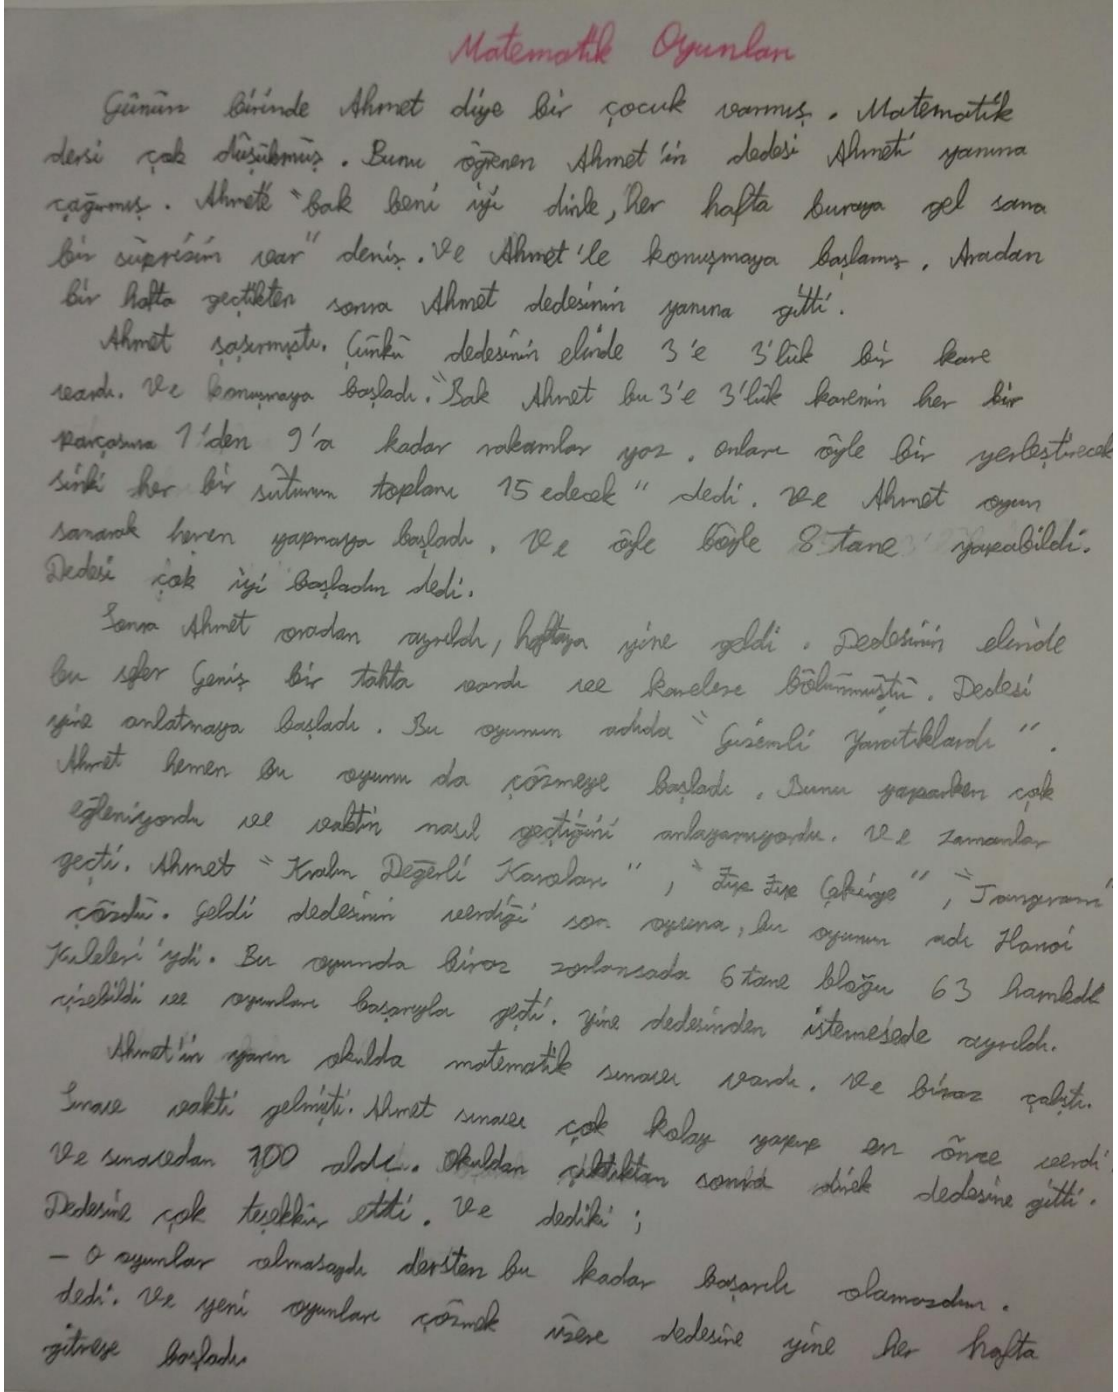 Matematik Oyunları
Günün birinde Ahmet diye bir çocuk varmış. Matematik
dersi çok düşükmüş. Bunu öğrenen Ahmet'in dedesi Ahmeti yanına
çağırmış. Ahmete "bak beni iyi dinle, her hafta buraya gel sana
bir süprisim var" demiş. Ve Ahmet'le konuşmaya başlamış. Aradan
bir hafta geçtikten sonra Ahmet dedesinin yanına gitti.
Ahmet şaşırmıştı. Çünkü dedesinin elinde 3'e 3'lük bir kare
vardı. Ve konuşmaya başladı. "Bak Ahmet bu 3'e 3'lük karenin her bir
parçasına 1'den 9'a kadar rakamlar yaz. onları öyle bir yerleştirecek
sinki her bir sütunun toplamı 15 edecek" dedi. Ve Ahmet oyun
sanarak hemen yapmaya başladı. Ve öyle böyle 8 tane yapabildi.
Dedesi çok iyi başladın dedi.
Sonra Ahmet oradan ayrıldı, haftaya yine geldi. Dedesinin elinde
bu sefer Geniş bir tahta vardı ve karelere bölünmüştü. Dedesi
yine anlatmaya başladı. Bu oyunun adıda "Gizemli Yaratıklardı".
Ahmet hemen bu oyunu da çözmeye başladı. Bunu yaparken çok
eğleniyordu ve vaktin nasıl geçtiğini anlayamıyordu. Ve zamanlar
geçti. Ahmet "Kralın Değerli Karoları", "Zıp Zıp Çekirge", "Tangram"
çözdü. Geldi dedesinin verdiği son oyuna, bu oyunun adı Hanoi
Kuleleri'ydi. Bu oyunda biraz zorlansada 6 tane bloğu 63 hamlede
çizebildi ve oyunları başarıyla geçti. Yine dedesinden istemesede ayrıldı.
Ahmet'in yarın okulda matematik sınavı vardı. Ve biraz çalıştı.
Sınav vakti gelmişti. Ahmet sınavı çok kolay yapıp en önce verdi.
Ve sınavdan 100 aldı. Okuldan çıktıktan sonra direk dedesine gitti.
Dedesine çok teşekkür etti. Ve dediki;
- O oyunlar olmasaydı dersten bu kadar başarılı olamazdım.
dedi. Ve yeni oyunları çözmek üzere dedesine yine her hafta
gitmeye başladı.